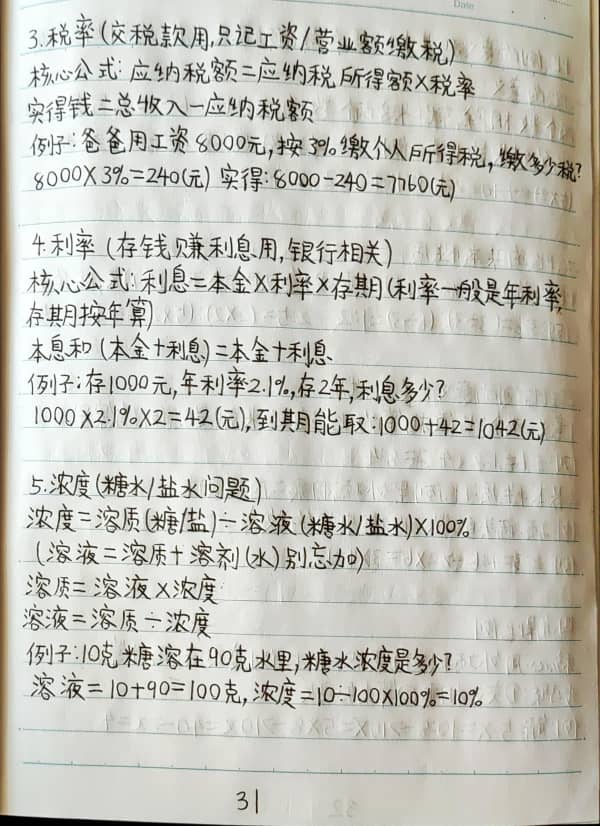 Date
3.税率(交税款用,只记工资/营业额缴税)
核心公式:应纳税额=应纳税所得额×税率
实得钱=总收入-应纳税额
例子:爸爸用工资8000元,按3%缴个人所得税,缴多少税?
8000×3%=240(元) 实得:8000-240=7760(元)
4.利率(存钱赚利息用,银行相关)
核心公式:利息=本金×利率×存期(利率一般是年利率,
存期按年算)
本息和(本金+利息)=本金+利息
例子:存1000元,年利率2.1%,存2年,利息多少?
1000×2.1%×2=42(元),到期能取:1000+42=1042(元)
5.浓度(糖水/盐水问题)
浓度=溶质(糖/盐)÷溶液(糖水/盐水)×100%
(溶液=溶质+溶剂(水)别忘加)
溶质=溶液×浓度
溶液=溶质÷浓度
例子:10克糖溶在90克水里,糖水浓度是多少?
溶液=10+90=100克,浓度=10÷100×100%=10%
31